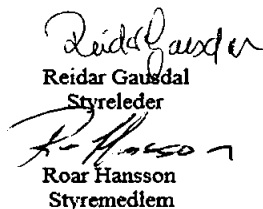 Reidar Gausdal
Reidar Gausdal
Styreleder
R Hansson
Roar Hansson
Styremedlem